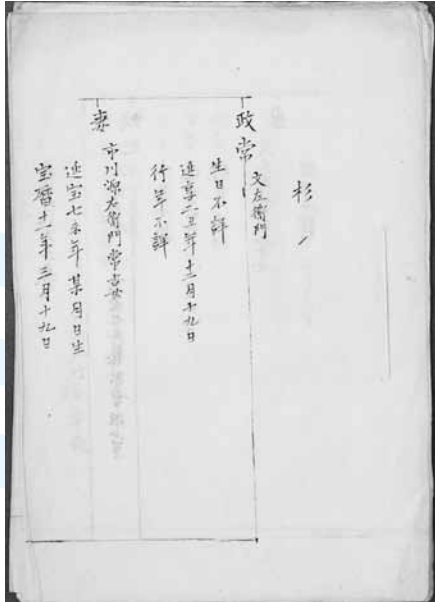 杉ノ
政常
文左衛門
生日不詳
延享二丑年十二月十九日
行年不詳
妻
市川源左衛門常吉女
延宝七未年某月日生
宝暦十一年三月十九日